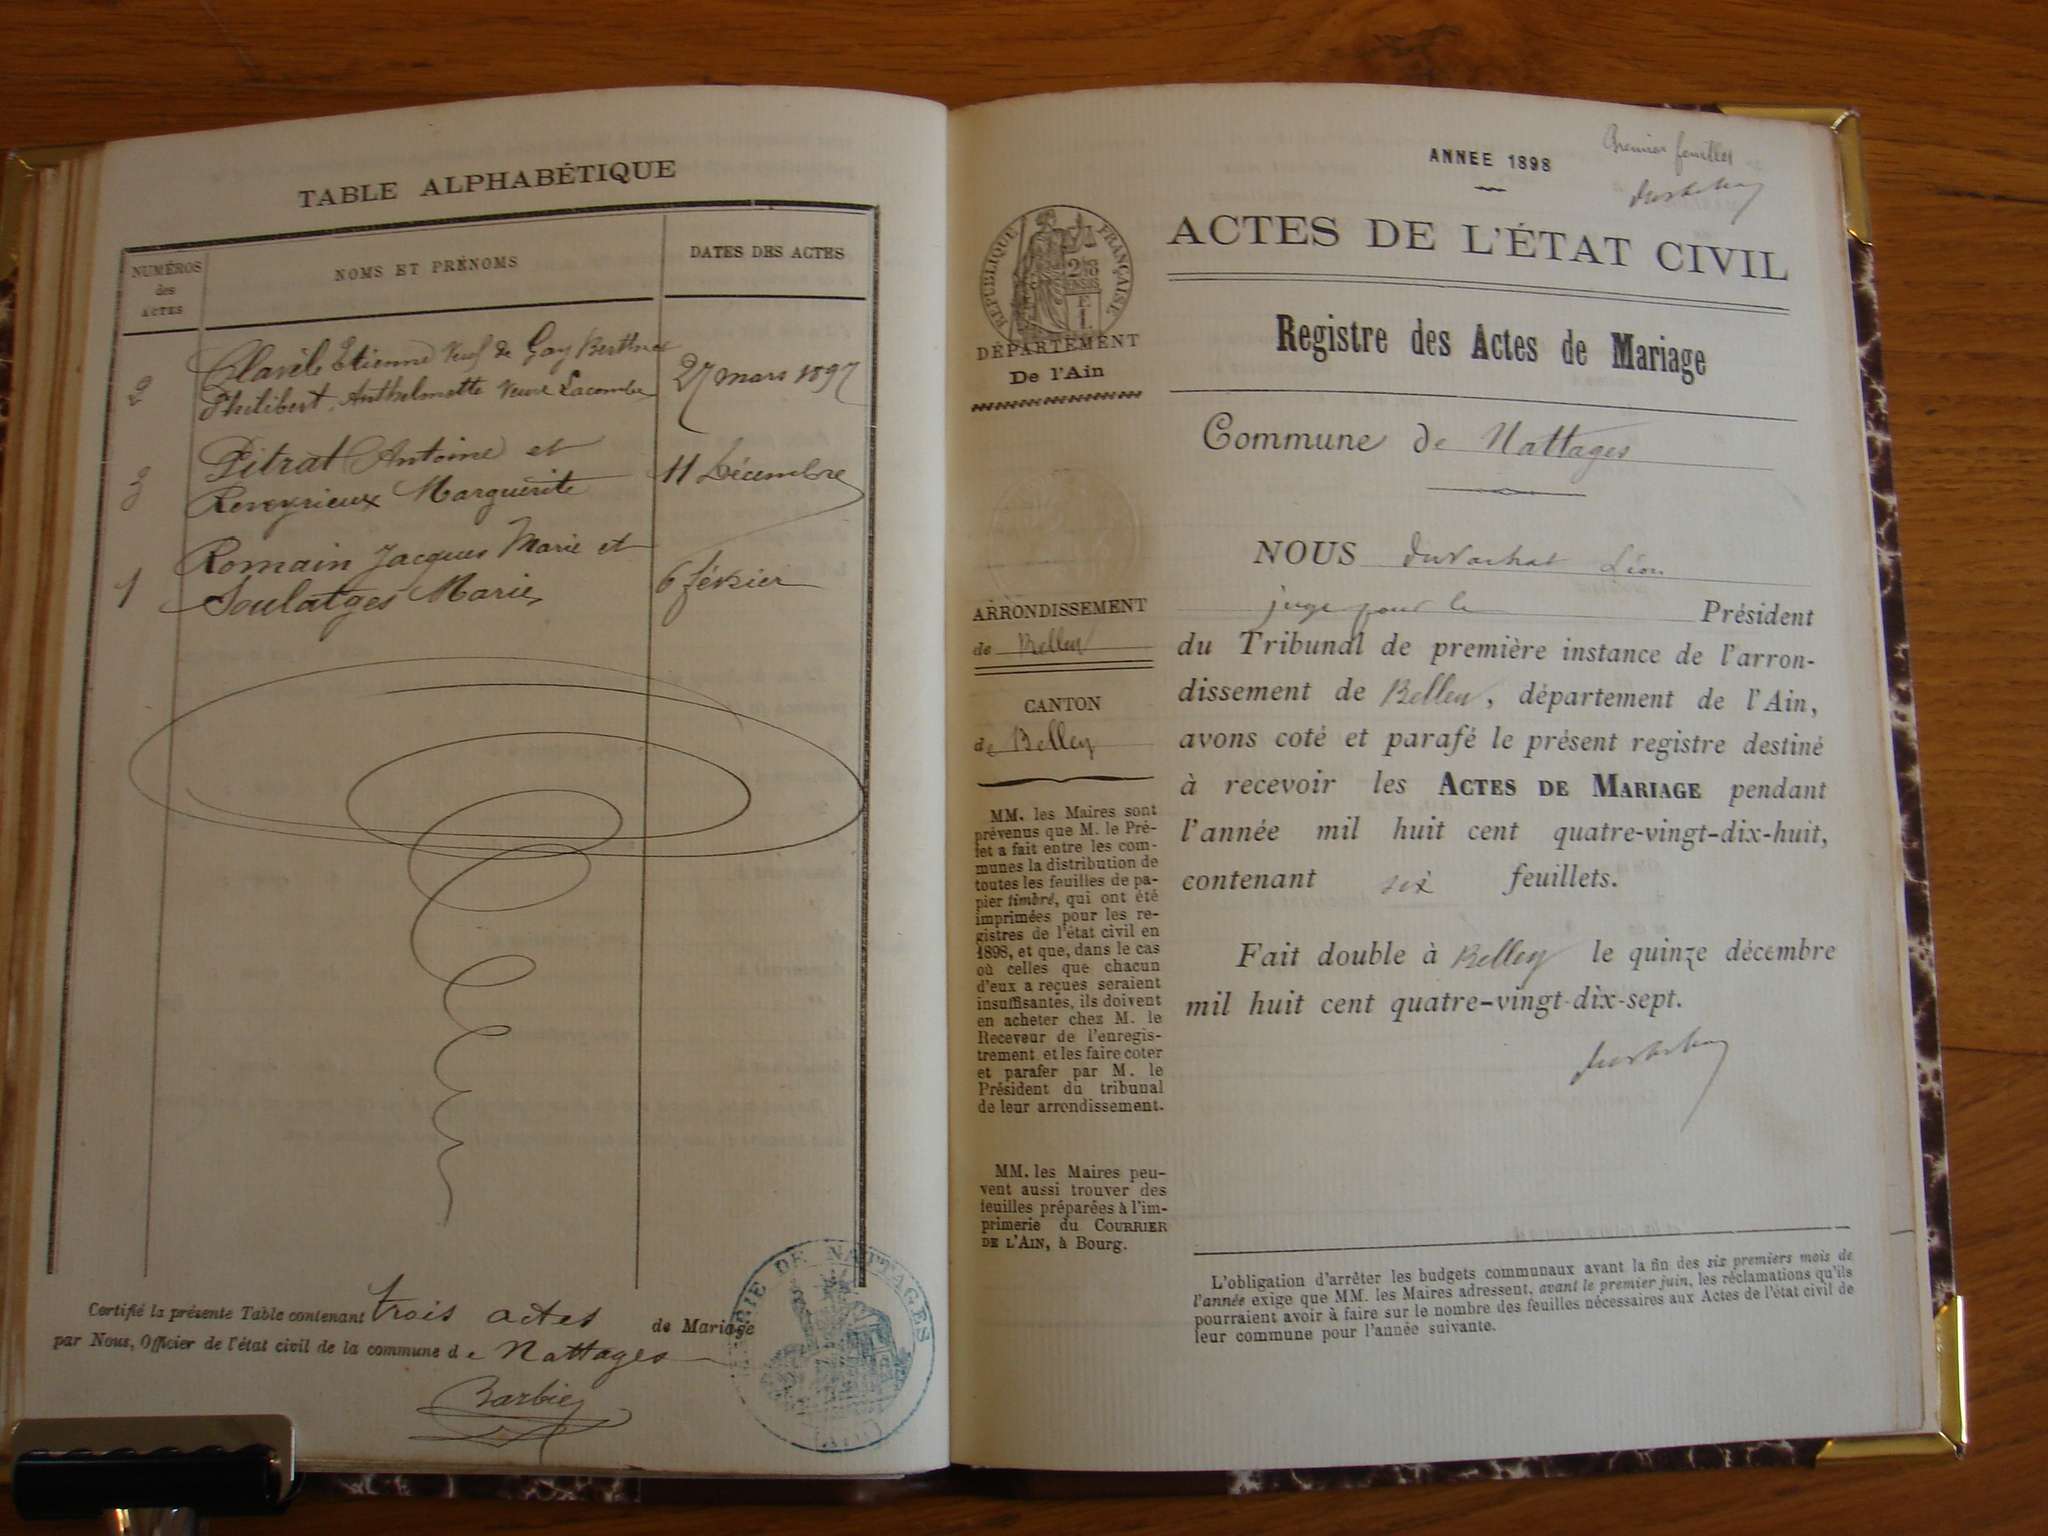 TABLE ALPHABÉTIQUE
NUMÉROS
des
ACTES
NOMS ET PRÉNOMS
DATES DES ACTES
2
Clavel Etienne Veuf de Gay Berthe
Philibert Anthelmette Veuve Lacombe
27 mars 1897
3
Pitrat Antoine et
Reveyrieux Marguerite
11 Décembre
1
Romain Jacques Marie et
Soulatges Marie
6 février
Certifié la présente Table contenant trois actes de Mariage
par Nous, Officier de l'état civil de la commune de Nattages
Barbier
MAIRIE DE NATTAGES
(AIN)
ANNEE 1898
Premier feuillet
RÉPUBLIQUE FRANÇAISE
DÉPARTEMENT
De l'Ain
ACTES DE L'ÉTAT CIVIL
Registre des Actes de Mariage
Commune de Nattages
ARRONDISSEMENT
de Belley
CANTON
de Belley
MM. les Maires sont
prévenus que M. le Pré-
fet a fait entre les com-
munes la distribution de
toutes les feuilles de pa-
pier timbré, qui ont été
imprimées pour les re-
gistres de l'état civil en
1898, et que, dans le cas
où celles que chacun
d'eux a reçues seraient
insuffisantes, ils doivent
en acheter chez M. le
Receveur de l'enregis-
trement et les faire coter
et parafer par M. le
Président du tribunal
de leur arrondissement.
MM. les Maires peu-
vent aussi trouver des
feuilles préparées à l'im-
primerie du COURRIER
DE L'AIN, à Bourg.
NOUS Duvachat Léon
juge pour le Président
du Tribunal de première instance de l'arron-
dissement de Belley, département de l'Ain,
avons coté et parafé le présent registre destiné
à recevoir les ACTES DE MARIAGE pendant
l'année mil huit cent quatre-vingt-dix-huit,
contenant six feuillets.
Fait double à Belley le quinze décembre
mil huit cent quatre-vingt-dix-sept.
L'obligation d'arrêter les budgets communaux avant la fin des six premiers mois de
l'année exige que MM. les Maires adressent, avant le premier juin, les réclamations qu'ils
pourraient avoir à faire sur le nombre des feuilles nécessaires aux Actes de l'état civil de
leur commune pour l'année suivante.